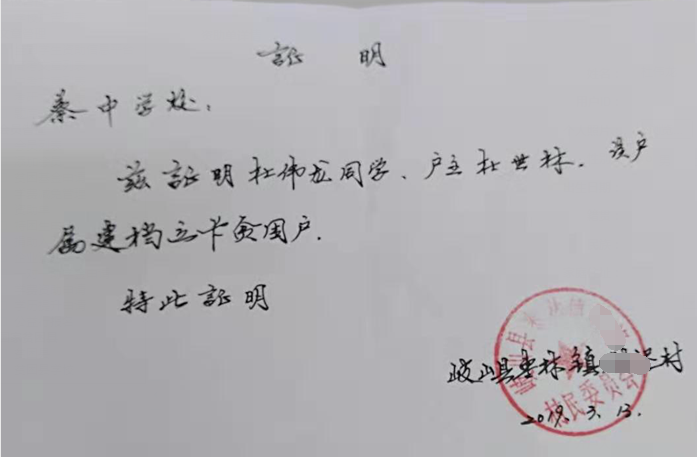 証 明
蔡中学校:
兹証明杜伟龙同学、户主杜世林、该户
属建档立卡贫困户.
特此証明
岐山县枣林镇 村
2019.3.13.
岐山县 村民委员会